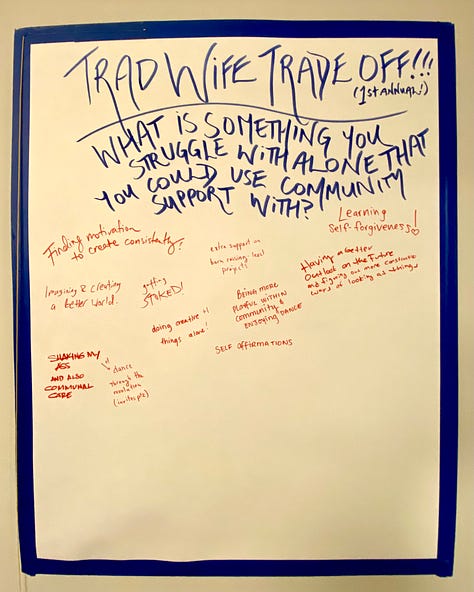 TRAD WIFE TRADE OFF!!!
(1st ANNUAL!)
WHAT IS SOMETHING YOU
STRUGGLE WITH ALONE THAT
YOU COULD USE COMMUNITY
SUPPORT WITH?
Learning
Self-forgiveness!
Finding motivation
to create consistently!
extra support on
barn raising-level
projects
Having a better
Outlook on the Future
and figuring out more constructive
ways of looking at things
Imagining & creating
a better world.
getting
STOKED!
Being more
playful within
community &
enjoying dance
doing creative
things alone!
SELF AFFIRMATIONS
SHAKING MY
ASS
AND ALSO
COMMUNAL
CARE
dance
through the
revolution
(invites plz)